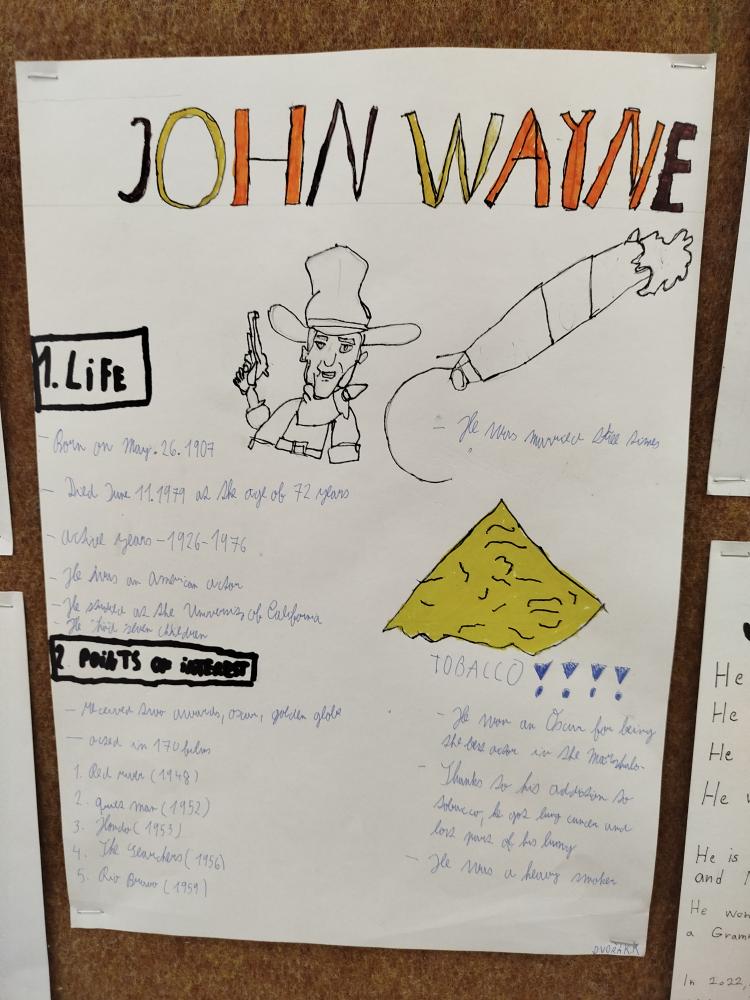 JOHN WAYNE
1. LiFE
- Born on May. 26. 1907
- Died June 11. 1979 at the age of 72 years
- active years - 1926-1976
- He was an American actor
- He studied at the University of California
- He had seven children
- He was married three times
2. POINTS OF iNTEREST
- received two awards, oscar, golden globe
- acted in 170 films
1. Red river (1948)
2. quiet man (1952)
3. Hondo (1953)
4. The Searchers (1956)
5. Rio Bravo (1959)
TOBACCO !!!!
- He won an Oscar for being
the best actor in the
- Thanks to his addiction to
tobacco, he got lung cancer and
lost part of his
- He was a heavy smoker
DVOŘÁK
He
He
He
He
He is
and
He won
a Gram
In 2022,